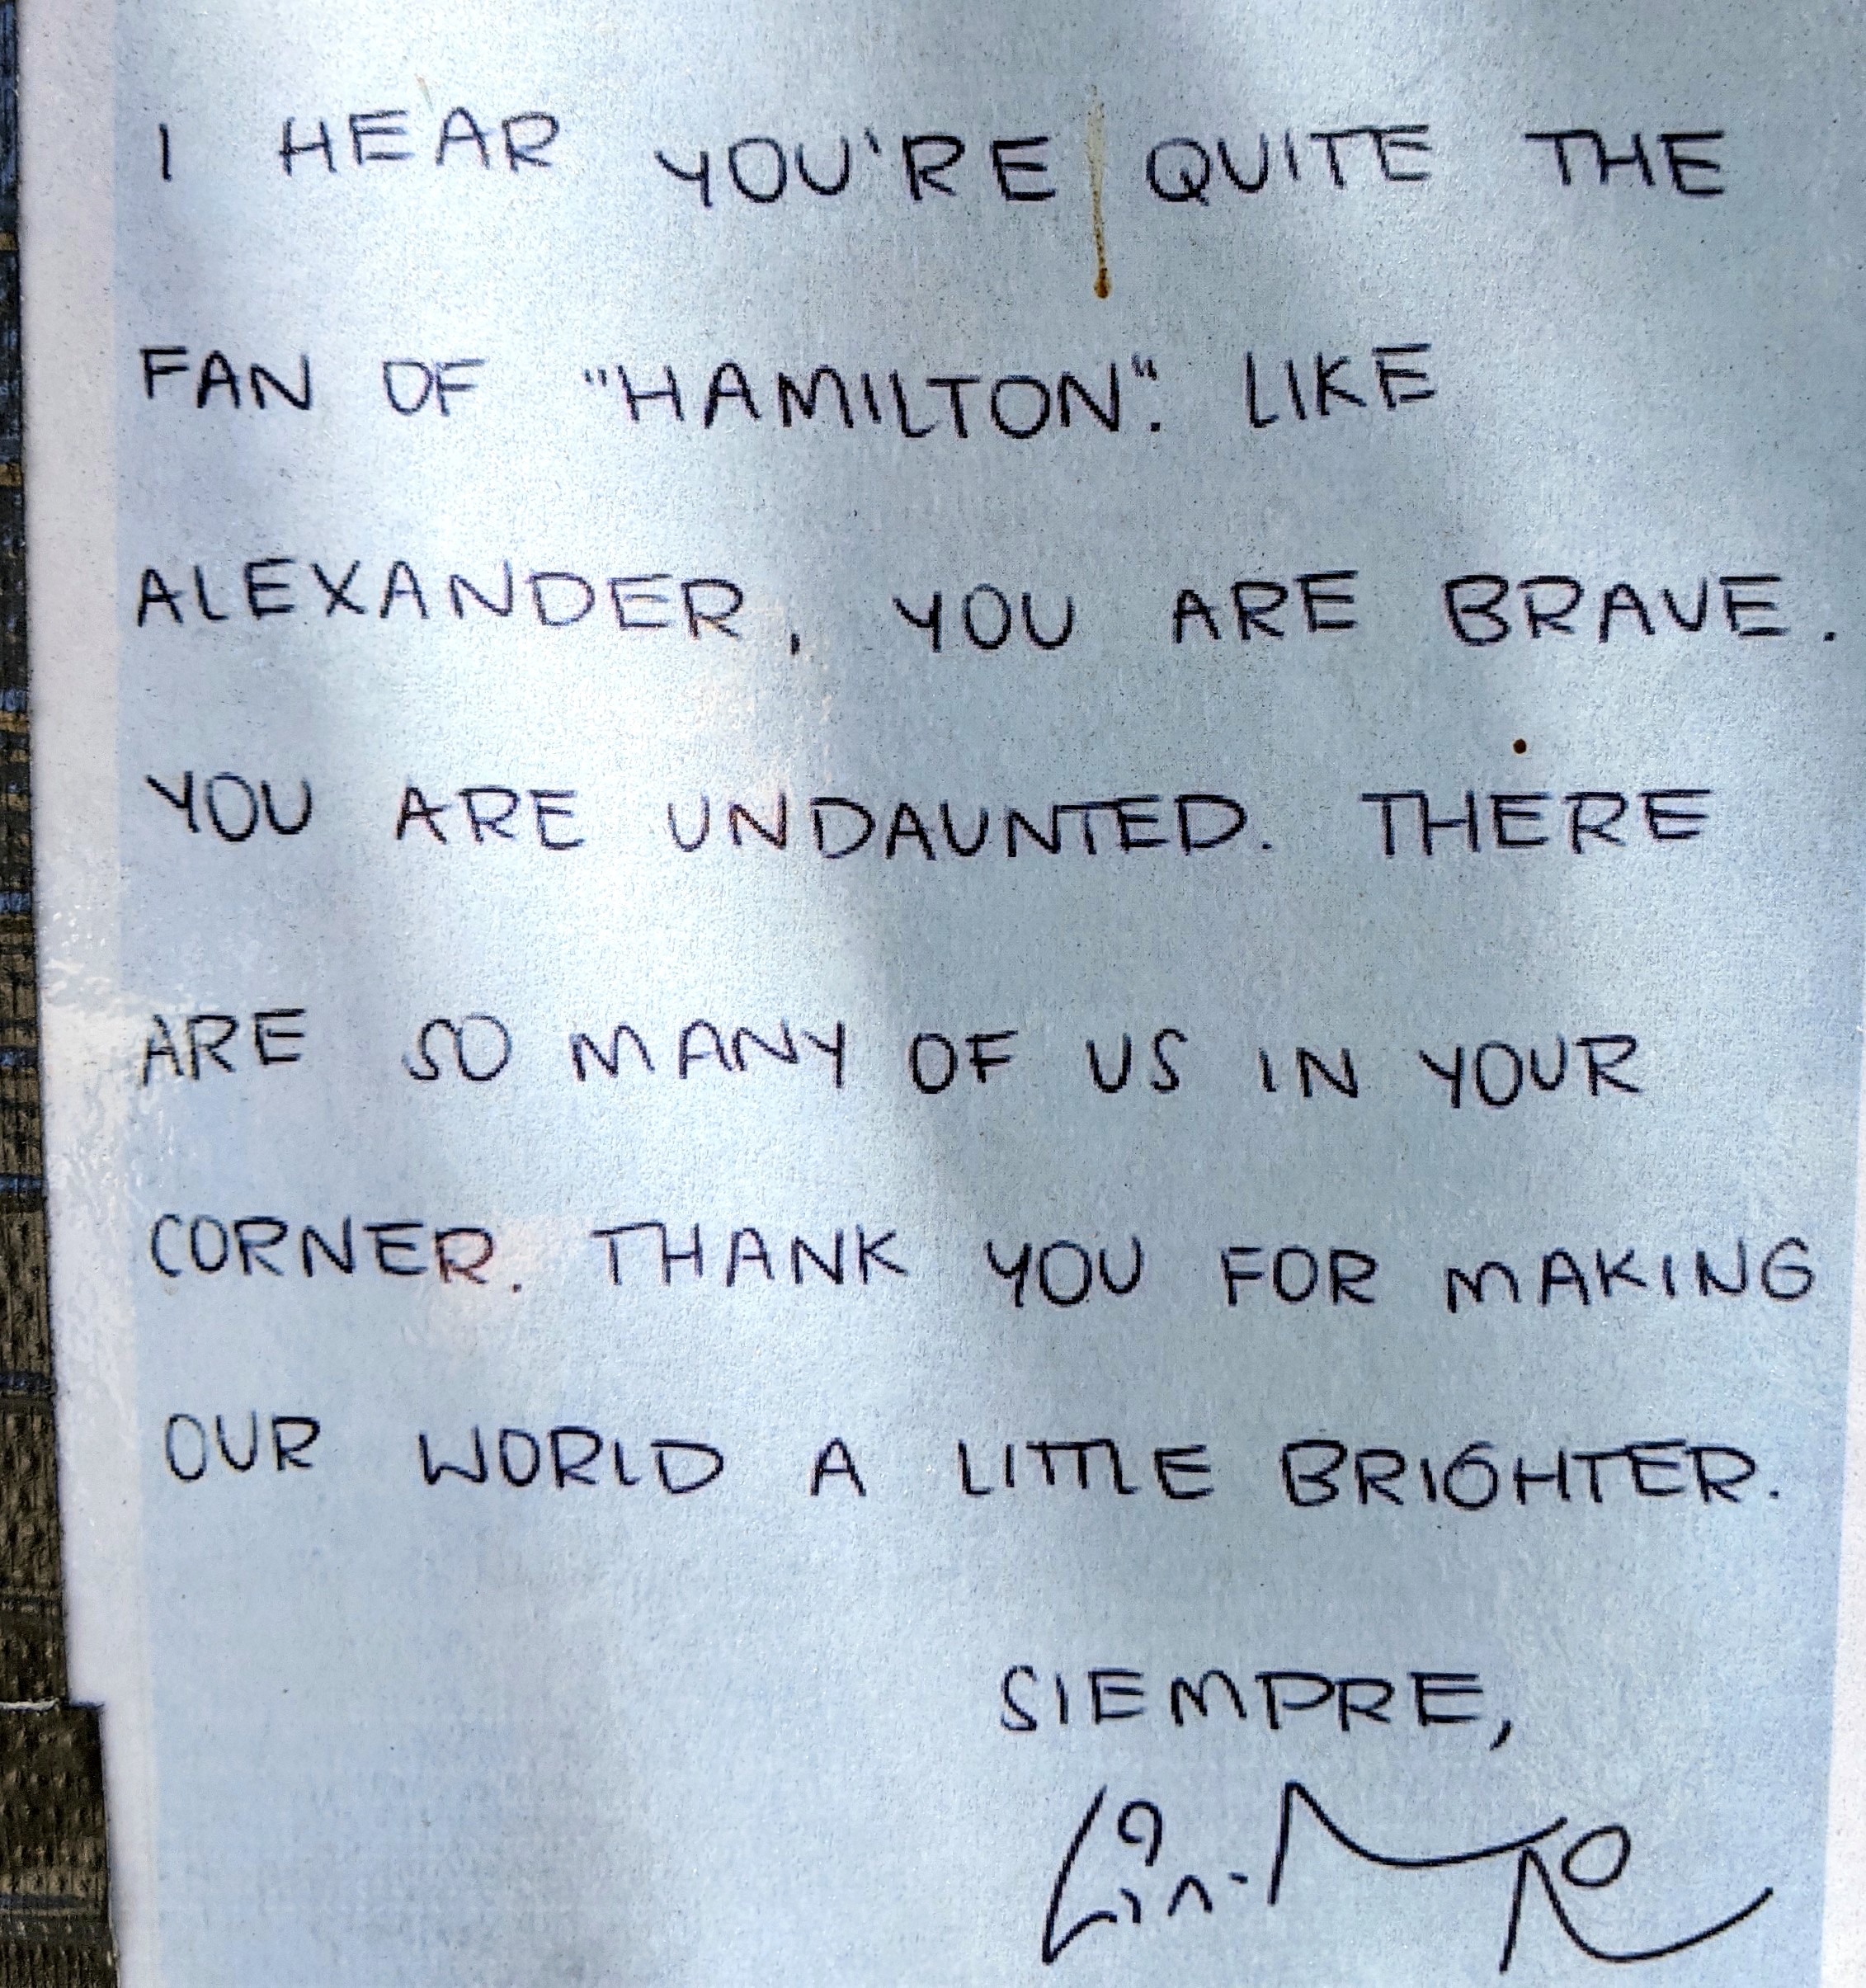 I HEAR YOU'RE QUITE THE
FAN OF "HAMILTON". LIKE
ALEXANDER, YOU ARE BRAVE.
YOU ARE UNDAUNTED. THERE
ARE SO MANY OF US IN YOUR
CORNER. THANK YOU FOR MAKING
OUR WORLD A LITTLE BRIGHTER.
SIEMPRE,
Lin-M